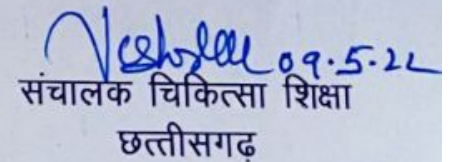 09.5.22
संचालक चिकित्सा शिक्षा
छत्तीसगढ़